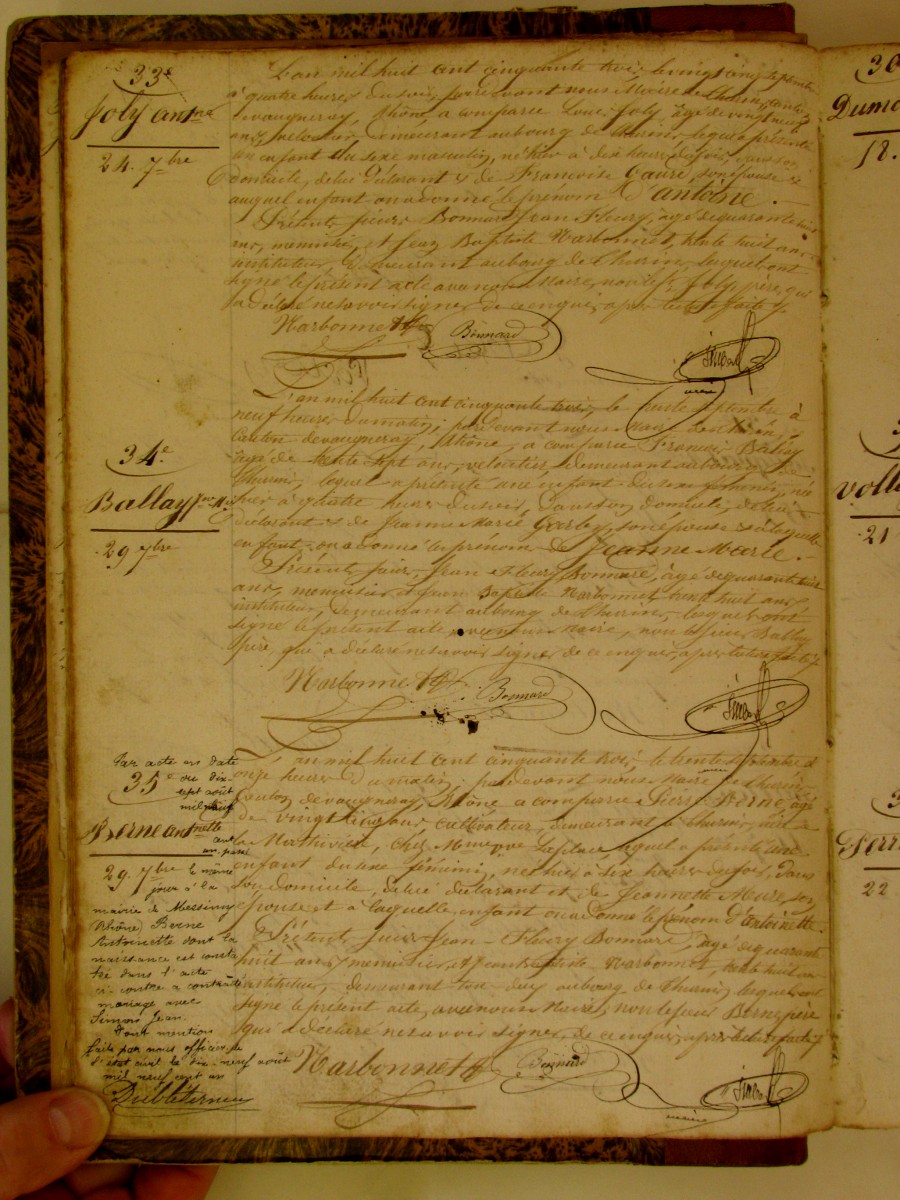 33e
Joly antne
24. 7bre
L'an mil huit cent cinquante trois, le vingt cinq septembre
à quatre heures du soir, pardevant nous Maire de thurin, canton
devaugneray, Rhône, a comparu Joly, âgé de vingt neuf
ans, demeurant au bourg de thurin, lequel a présenté
un enfant du sexe masculin, né hier à dix heures du soir, dans son
domicile, de lui déclarant & de Francoise Gauré, son épouse &
auquel enfant on a donné le prénom D'antoine. —
Présents, sieurs Bonnard Jean Fleury, âgé de quarante huit
ans, menuisier, et Jean Baptiste Narbonnet, trente huit ans
instituteur, demeurant au bourg de thurin, lesquels ont
signé le présent acte avec nous Maire, non le sr Joly, père, qui
a déclaré ne savoir signer de ce enquis, après lecture faite.
Narbonnet Bonnard
maire
34e
Ballay Jne Mie
29 7bre
L'an mil huit cent cinquante trois, le trente septembre à
neuf heures du matin, pardevant nous Maire de thurin,
Canton devaugneray, Rhône, a comparu Francois Ballay
âgé de trente sept ans, veloutier, demeurant au bourg de
thurin, lequel a présenté une enfant du sexe féminin, née
hier à quatre heures du soir, dans son domicile, de lui
déclarant & de Jeanne Marie son épouse & à laquelle
enfant on a donné les prénom de Jeanne Marie. —
Présents, sieurs, Jean Fleury Bonnard, âgé de quarante huit
ans, menuisier, et Jean Baptiste Narbonnet trente huit ans
instituteur, demeurant au bourg de thurin, lesquels ont
signé le présent acte, avec nous Maire, non le sieur Ballay
père, qui a déclaré ne savoir signer de ce enquis, après lecture faite.
Narbonnet Bonnard
maire
35e
Berne antnette
29. 7bre
L'an mil huit cent cinquante trois, le trente septembre à
onze heures du matin, pardevant nous Maire de thurin
Canton devaugneray, Rhône a comparu Pierre Berne, âgé
de vingt cinq ans, cultivateur, demeurant à thurin, lieu de
la chez Mme Laplace lequel a présenté une
enfant du sexe féminin, née hier à six heures du soir, dans
son domicile, de lui déclarant et de Jeannette Mure, son
épouse et à laquelle enfant on a donné le prénom d'Antoinette.
Présents, sieurs Jean-Fleury Bonnard, âgé de quarante
huit ans, menuisier, & Jean Baptiste Narbonnet, trente huit ans
instituteur, demeurant tous deux au bourg de thurin, lesquels ont
signé le présent acte, avec nous Maire, non le sieur Berne, père
qui a déclaré ne savoir signer, de ce enquis, après lecture faite.
Narbonnet Bonnard
maire
Par acte en date
du dix-
sept août
mil neuf
cent
un passé
le même
jour à la
mairie de Messimy
Rhône, Berne
Antoinette dont la
naissance est consta-
tée dans l'acte
ci-contre a contracté
mariage avec
Simon Jean.
Dont mention
faite par nous officier de
l'état civil le dix-neuf août
mil neuf cent un
30
Dumo
18.
Voll
21
22